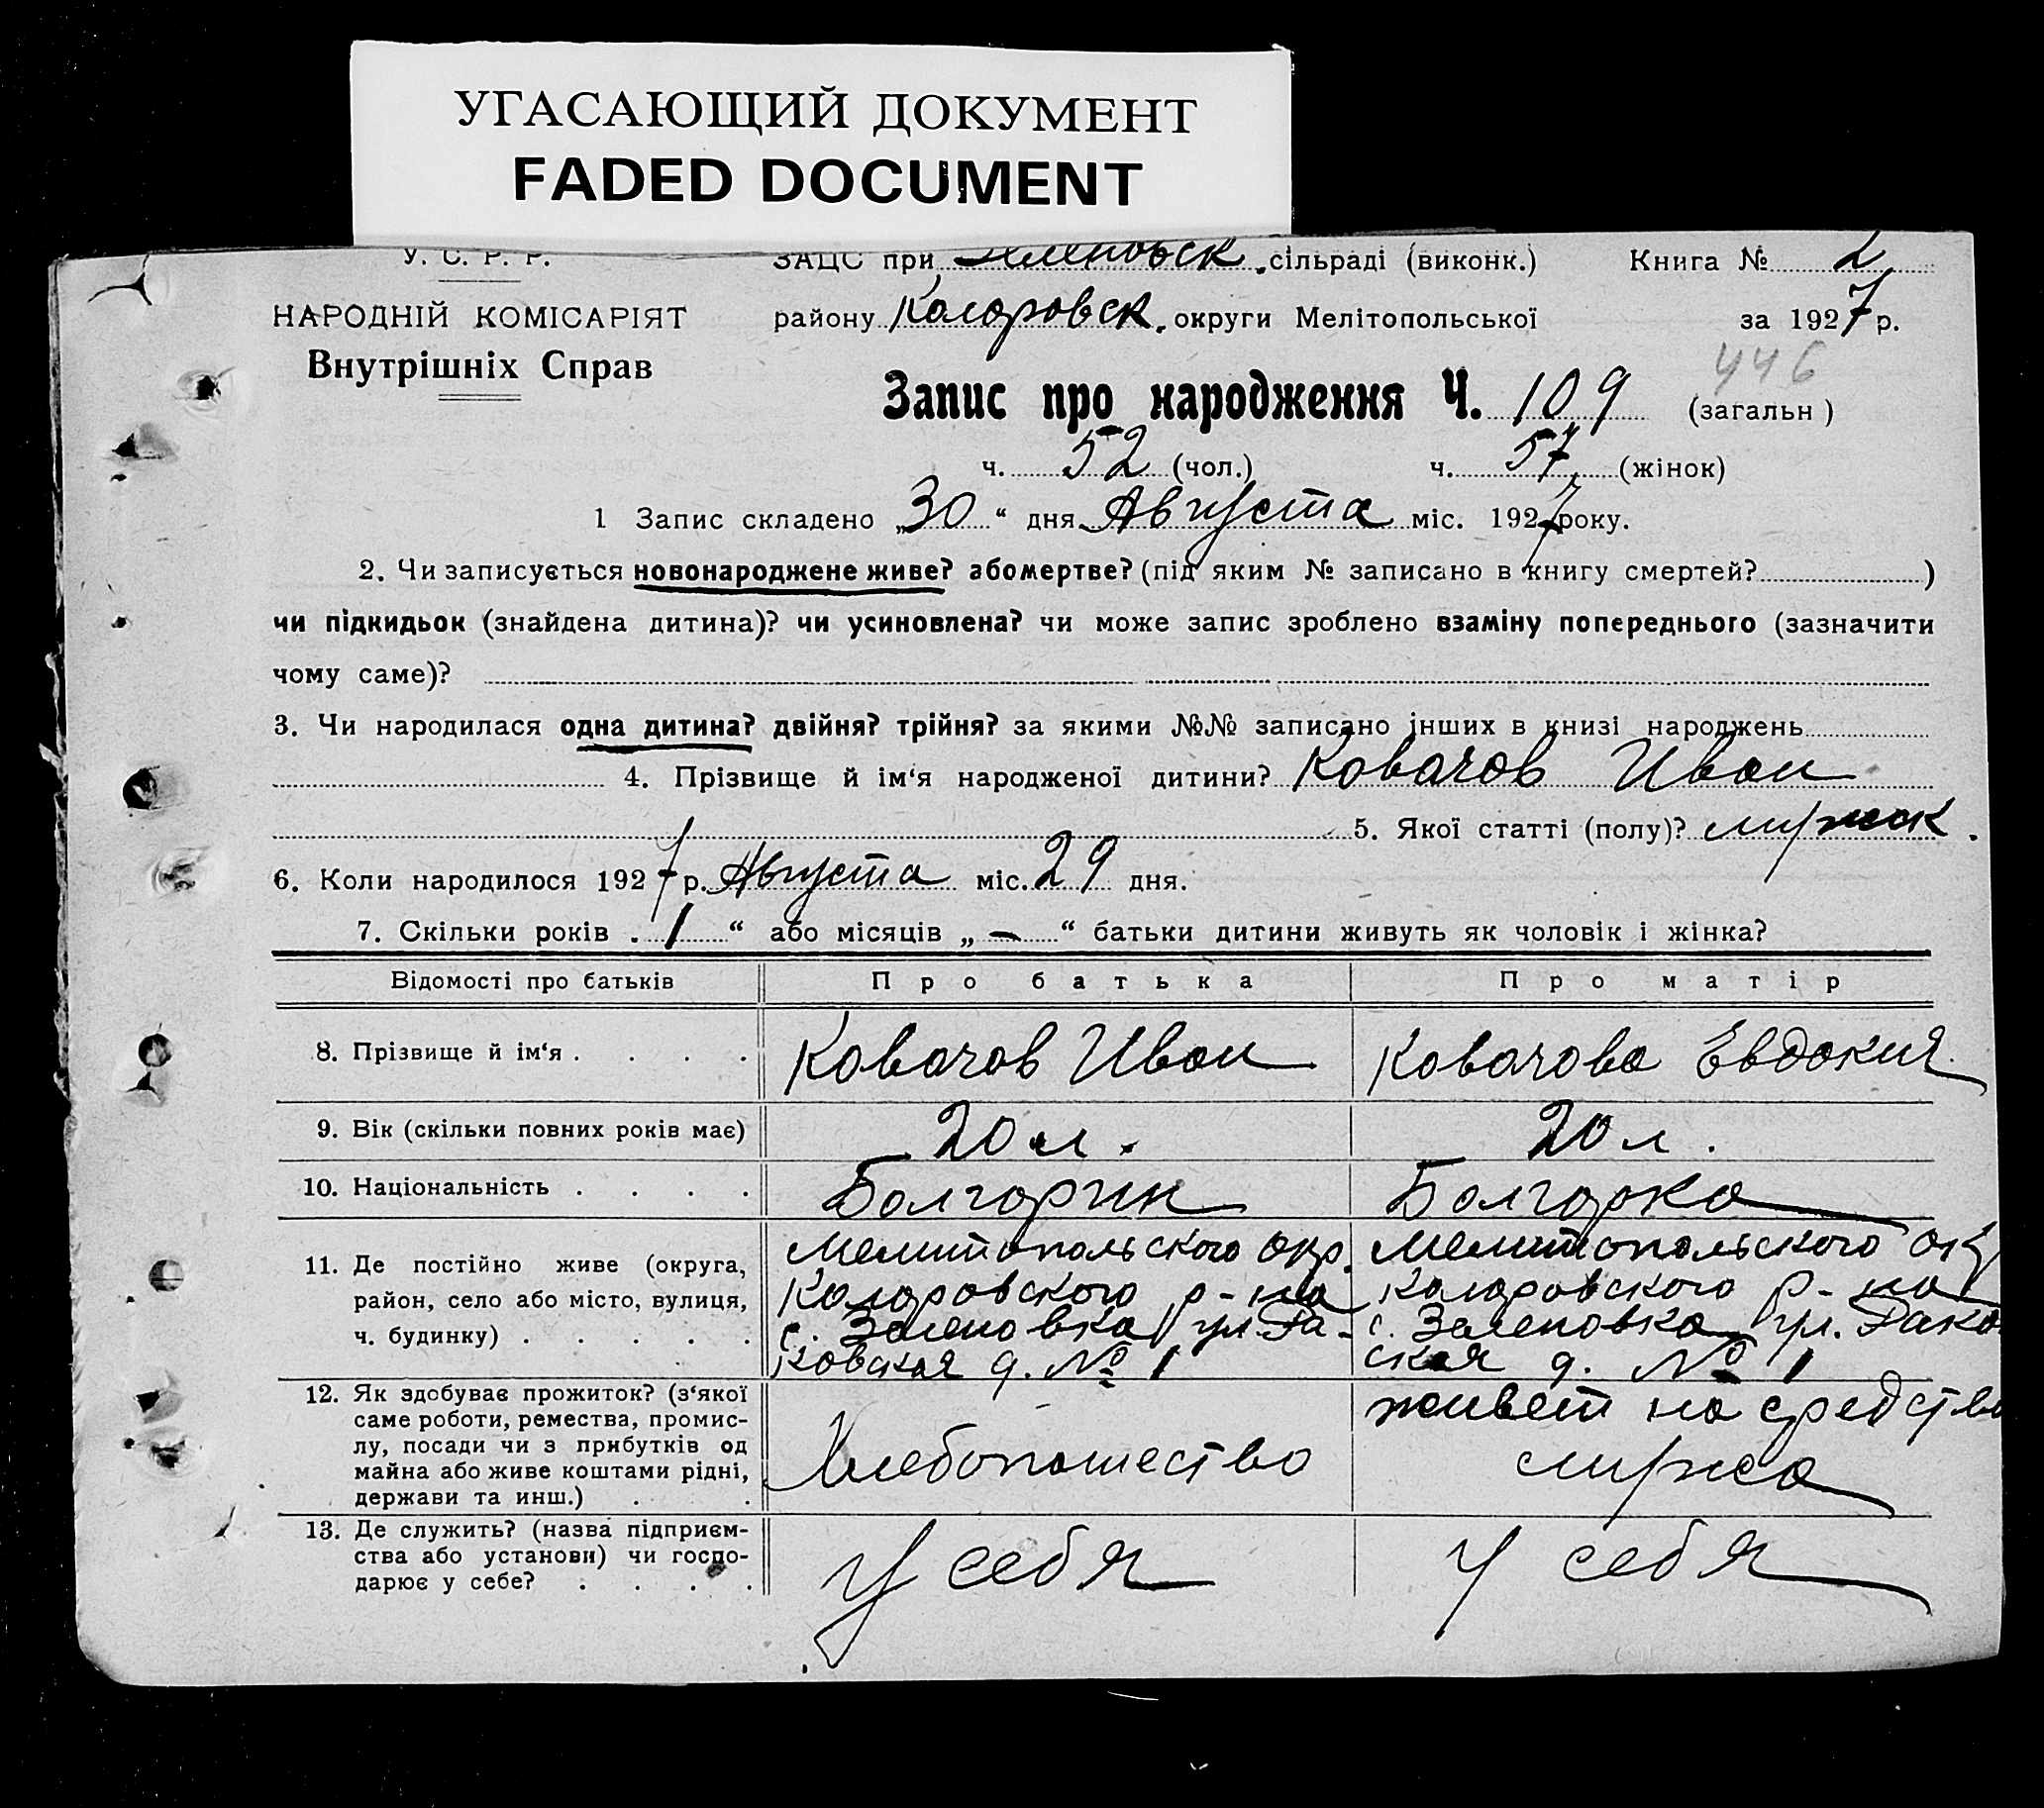 УГАСАЮЩИЙ ДОКУМЕНТ
FADED DOCUMENT
У. С. Р. Р. ЗАЦС при сільраді (виконк.) Книга № 2
НАРОДНІЙ КОМІСАРІЯТ району Коларовск. округи Мелітопольської за 1927 р.
Внутрішніх Справ
446
Запис про народження Ч. 109 (загальн)
ч. 52 (чол.) ч. 57 (жінок)
1 Запис складено „30“ дня Августа міс. 1927 року.
2. Чи записується новонароджене живе? або мертве? (під яким № записано в книгу смертей? )
чи підкидьок (знайдена дитина)? чи усиновлена? чи може запис зроблено взаміну попереднього (зазначити
чому саме)?
3. Чи народилася одна дитина? двійня? трійня? за якими №№ записано інших в книзі народжень
4. Прізвище й ім‘я народженої дитини? Ковачов Иван
5. Якої статті (полу)? мужск.
6. Коли народилося 1927 р. Августа міс. 29 дня.
7. Скільки років „1“ або місяців „—“ батьки дитини живуть як чоловік і жінка?
Відомості про батьків Про батька Про матір
8. Прізвище й ім‘я . . . . Ковачов Иван Ковачова Евдокия
9. Вік (скільки повних років має) 20 л. 20 л.
10. Національність . . . . Болгарин Болгарка
11. Де постійно живе (округа,
район, село або місто, вулиця,
ч. будинку) . . . . .
Мелитопольского окр.
Коларовского р-на
с. Зеленовка ул. Ра-
ковская д. № 1
Мелитопольского ок
Коларовского р-на
с. Зеленовка ул. Рако
ская д. № 1
12. Як здобуває прожиток? (з‘якої
саме роботи, ремества, промис-
лу, посади чи з прибутків од
майна або живе коштами рідні,
держави та инш.) . .
Хлебопашество
живет на средства
мужа
13. Де служить? (назва підприєм-
ства або установи) чи госпо-
дарює у себе? . . . .
У себя
У себя